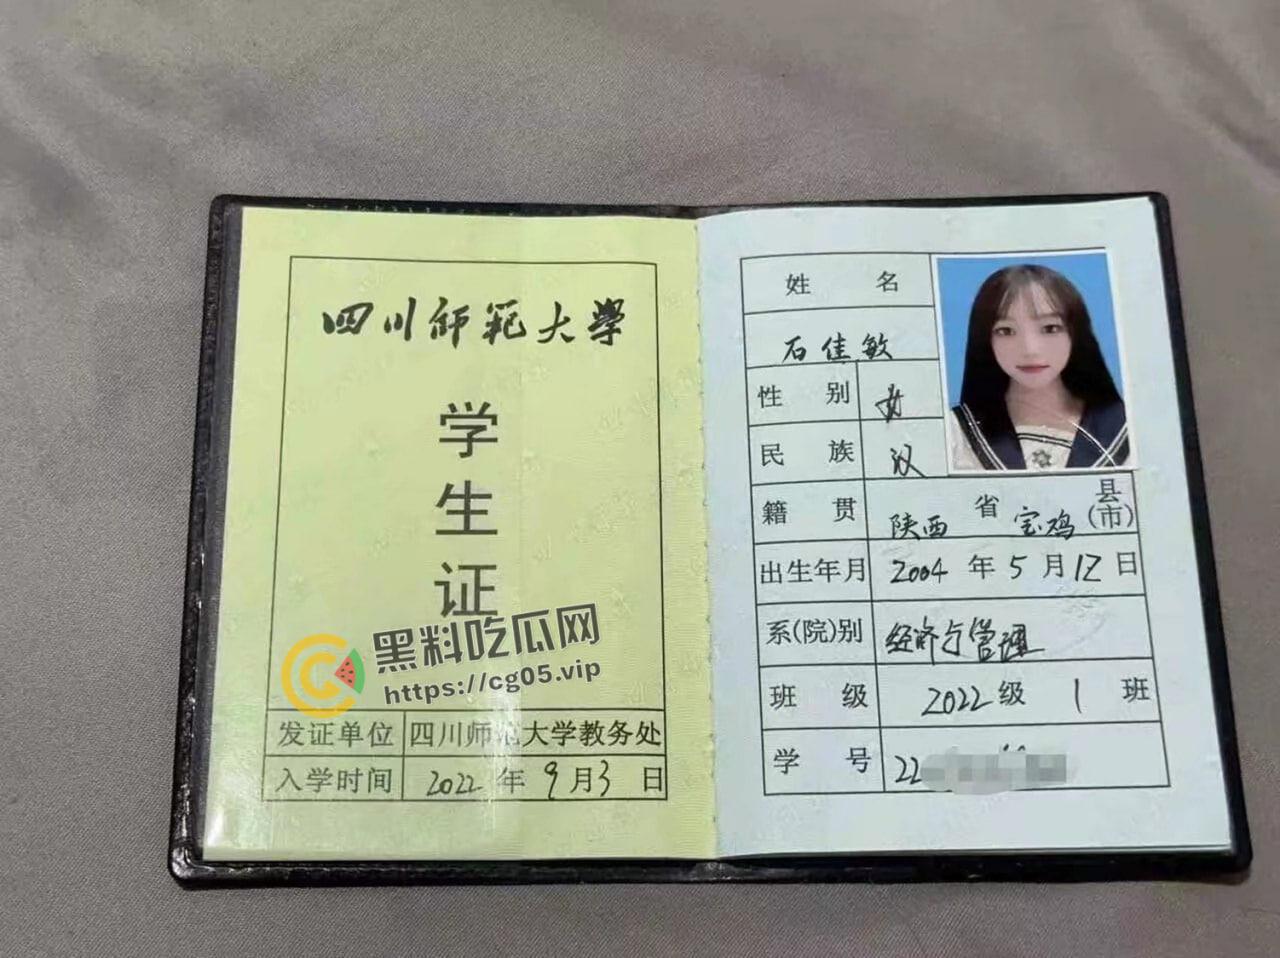 四川师范大学
学
生
证
黑料吃瓜网
https://cg05.vip
发证单位 四川师范大学教务处
入学时间 2022 年 9 月 3 日
姓 名
石佳敏
性 别 女
民 族 汉
籍 贯 陕西 省 宝鸡 县(市)
出生年月 2004 年 5 月 12 日
系(院)别 经济与管理
班 级 2022 级 1 班
学 号 22